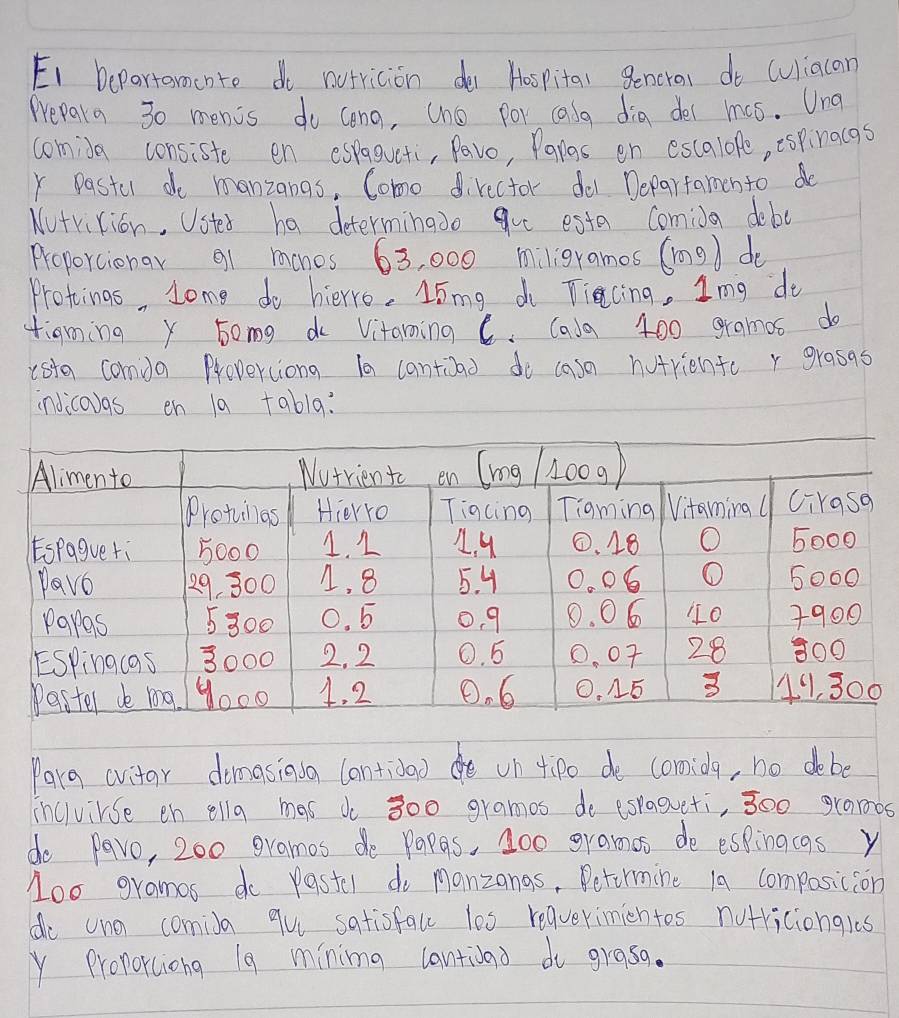 El Departamento de nutrición del Hospital general de Culiacan
Prepara 30 menús de cena, uno por cada dia del mes. Una
comida consiste en espagueti, Pavo, Papas en escalope, espinacas
y pastel de manzanas. Como director del Departamento de
Nutrición. Usted ha determinado que esta comida debe
Proporcionar al menos 63,000 miligramos (mg) de
Proteinas, 10mg de hierro. 15mg de Tiacina, 1mg de
tiamina y 50mg de Vitamina C. Cada 100 gramos de
esta comida Proporciona la cantidad de cada nutriente y grasas
indicadas en la tabla:
Alimento Nutriente en (mg/100g)
Proteinas Hierro Tiacina Tiamina Vitamina C Grasa
Espagueti 5000 1.1 1.4 0.18 0 5000
Pavo 29,300 1.8 5.4 0.06 0 5000
Papas 5300 0.5 0.9 0.06 10 7900
Espinacas 3000 2.2 0.5 0.07 28 300
Pastel de ma. 4000 1.2 0.6 0.15 3 14,300
Para evitar demasiada cantidad de un tipo de comida, no debe
incluirse en ella mas de 300 gramos de espagueti, 300 gramos
de Pavo, 200 gramos de Papas, 100 gramos de espinacas y
100 gramos de Pastel de Manzanas. Determine la composición
de una comida que satisface los requerimientos nutricionales
y Proporciona la mínima cantidad de grasa.